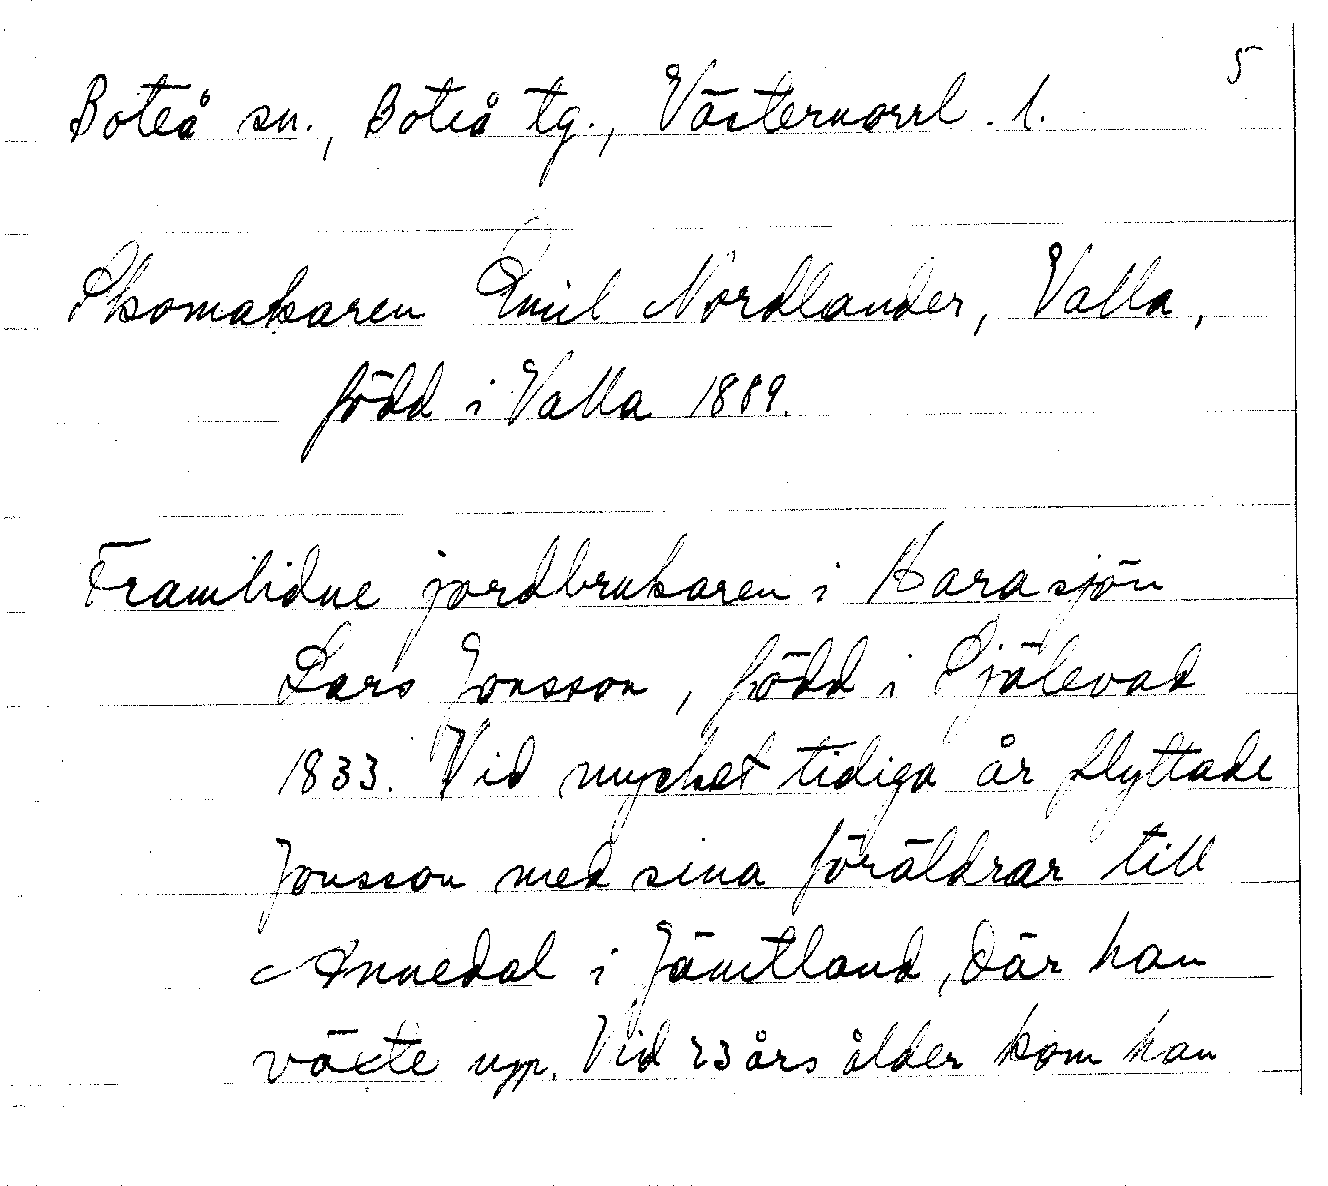 5
Boteå sn., Boteå tg., Västernorrl. l.
Skomakaren Emil Nordlander, Valla,
född i Valla 1889.
Framlidne jordbrukaren i Harasjön
Lars Jonsson, född i Själevad
1833. Vid mycket tidiga år flyttade
Jonsson med sina föräldrar till
Annedal i Jämtland, där han
växte upp. Vid 23 års ålder kom han